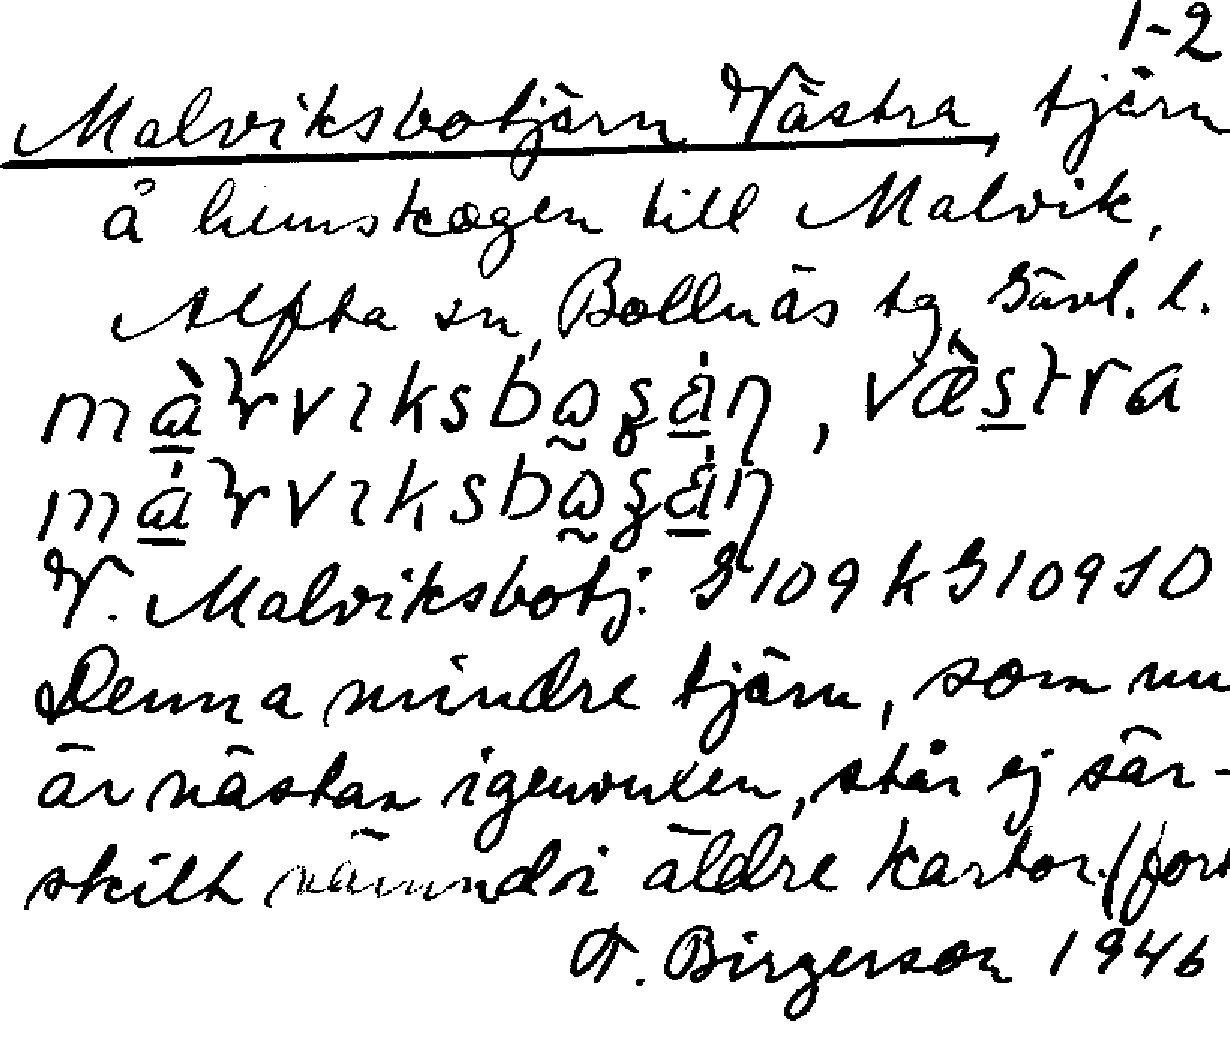 1-2
Malviksbotjärn, Västra, tjärn
å hemskogen till Malvik,
Alfta sn, Bollnäs tg, Gävl. l.
V. Malviksbotj. G 109 k G 109 SO
Denna mindre tjärn, som nu
är nästan igenvuxen, står ej sär-
skilt nämnd i äldre kartor. (fort
F. Birgerson 1946